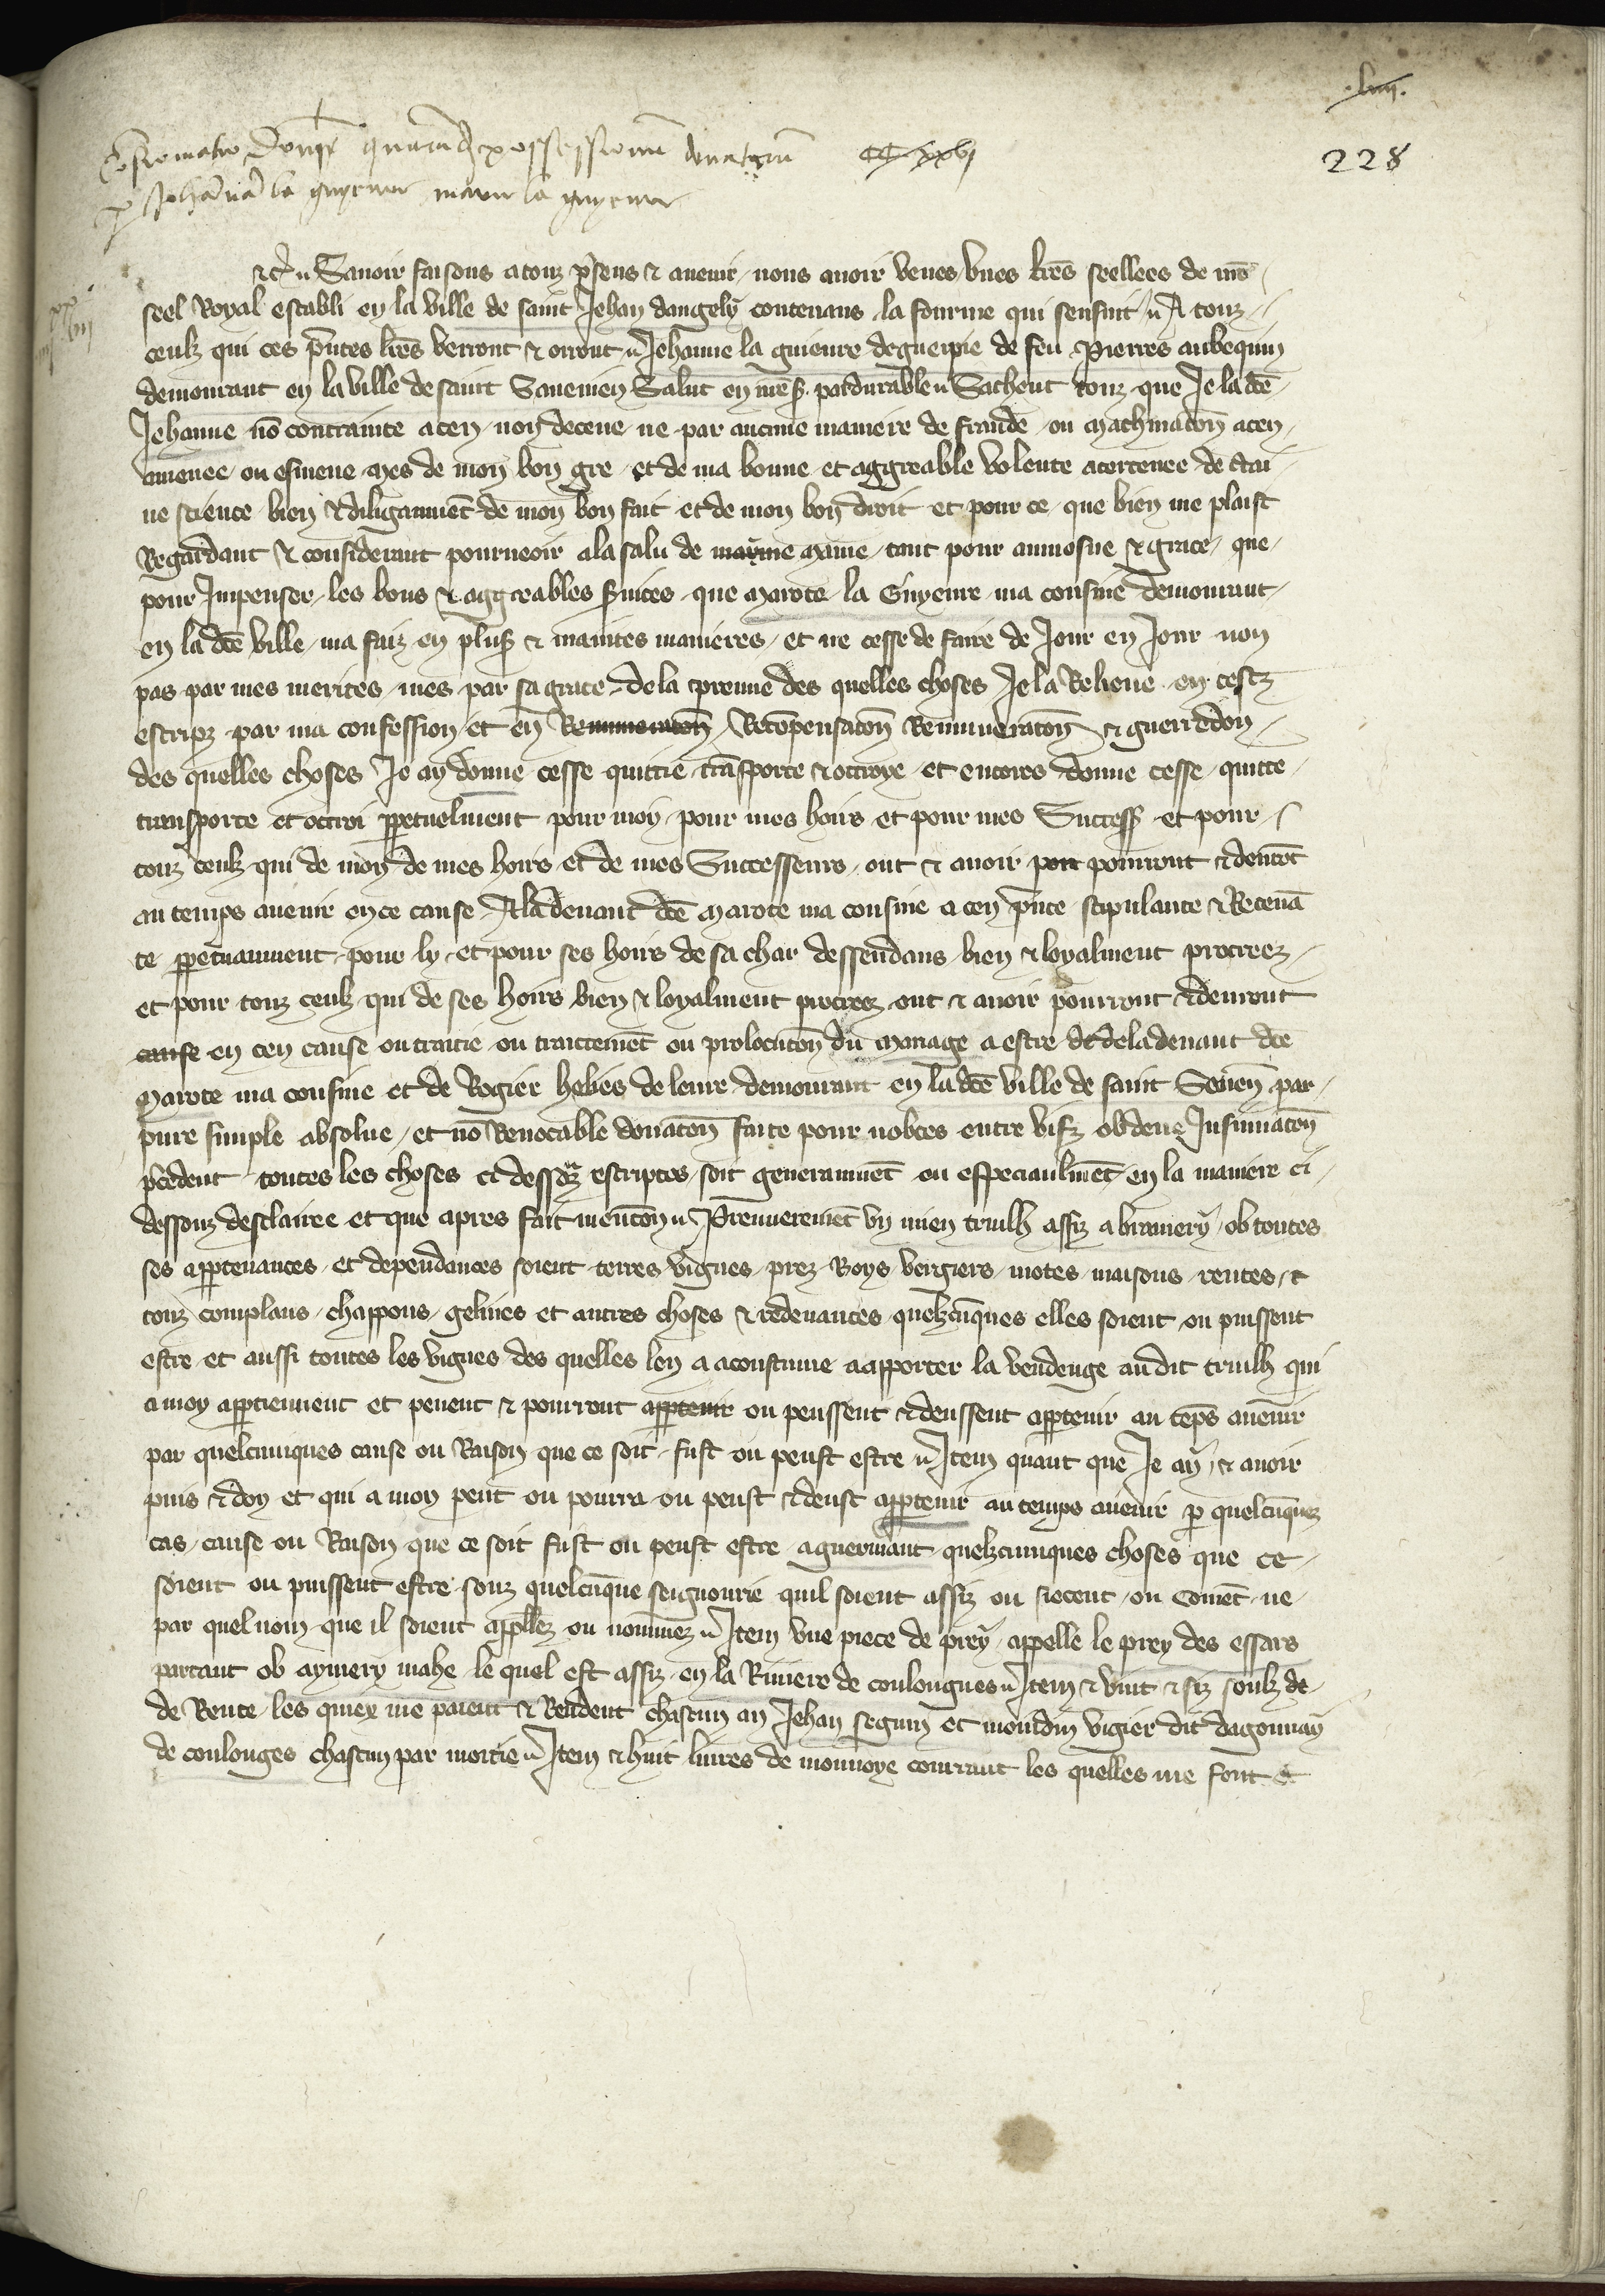 .liiii.
Confirmatio donorum quarumdam possessionum donatarum CC xxvi 228
per Johannam la guyenne marote la guyenne
etc. Savoir faisons a touz presens et avenir nous avoir veues unes lettres seellees de nostre
seel Royal establi en la ville de saint Jehan dangely contenans la fourme qui sensuit A touz
ceulz qui ces presentes lettres verront et orront Jehanne la guienne deguerpie de feu Pierres aubequin
demourant en la ville de saint Savenien Salut en nostre seigneur pardurable Sachent touz que Je la dicte
Jehanne non contrainte a cen non deceue ne par aucune maniere de fraude ou machinacion a cen
amenee ou esmeue mes de mon bon gre et de ma bonne et aggreable volente acertenee de certai
ne science bien et diligamment de mon bon fait et de mon bon droit et pour ce que bien me plaist
Regardant et considerant pourveoir a la salu de mame tant pour aumosne et grace que
pour Impenser les bons et aggreables services que marote la Guyenne ma cousine demourant
en la dicte ville ma faiz en pluseurs et maintes manieres et ne cesse de faire de Jour en Jour non
pas par mes merites mes par sa grace de la preuve des quelles choses Je la Relieve en cestz
escripz par ma confession et en Remuneracion Recompensacion Remuneracion et guerredon
des quelles choses Je ay donne cesse quittie transporte et octroye et encores donne cesse quitte
transporte et octroi perpetuelment pour moy pour mes hoirs et pour mes Successeurs et pour
touz ceulz qui de moy de mes hoirs et de mes Successeurs ont et avoir pourront et devront
au temps avenir en ce cause A la devant dicte marote ma cousine a cen presente stipulante et Recevan
te perpetuaument pour ly et pour ses hoirs de sa char dessendans bien et loyalment procreez
et pour touz ceulz qui de ses hoirs bien et loyalment procreez ont et avoir pourront et devront
cause en cen cause ou traitie ou traictement ou prolocucion du mariage a estre de la devant dicte
marote ma cousine et de Rogier helies de leure demourant en la dicte ville de saint Sevenien par
pure simple absolue et non Revocable donacion faite pour nobces entre vifz ob deue Insinuacion
precedent toutes les choses ci dessoubz escriptes soit generaument ou especiaulment en la maniere ci
dessouz desclairee et que apres fait mencion Premierement un mien truilh assiz a biramery ob toutes
ses appartenances et dependances soient terres vignes prez Boys vergiers motes maisons rentes et
touz complans chappons gelines et autres choses et redevances quelzcunques elles soient ou puissent
estre et aussi toutes les vignes des quelles len a acoustume a apporter la vendenge audit truilh qui
a moy appartiennent et pevent et pourront appartenir ou peussent et deussent appartenir au temps avenir
par quelcunques cause ou Raison que ce soit fust ou peust estre Item quant que Je ay et avoir
puis et doy et qui a moy peut ou pourra ou peust et deust appartenir au temps avenir par quelcunques
cas cause ou Raison que ce soit fust ou peust estre a guermant quelzcunques choses que ce
soient ou puissent estre souz quelcunque seignourie quil soient assiz ou siecent ou coment ne
par quel nom que il soient appellez ou nommez Item une piece de prey appelle le prey des essars
partant ob aymery mahe le quel est assiz en la Riviere de coulongnes Item et vint et siz soulz de
de Rente les quiex me paient et Rendent chascun an Jehan seguin et moudin vigier dit dagounay
de coulonges chascun par moitie Item et huit livres de monnoye courrant les quelles me font et